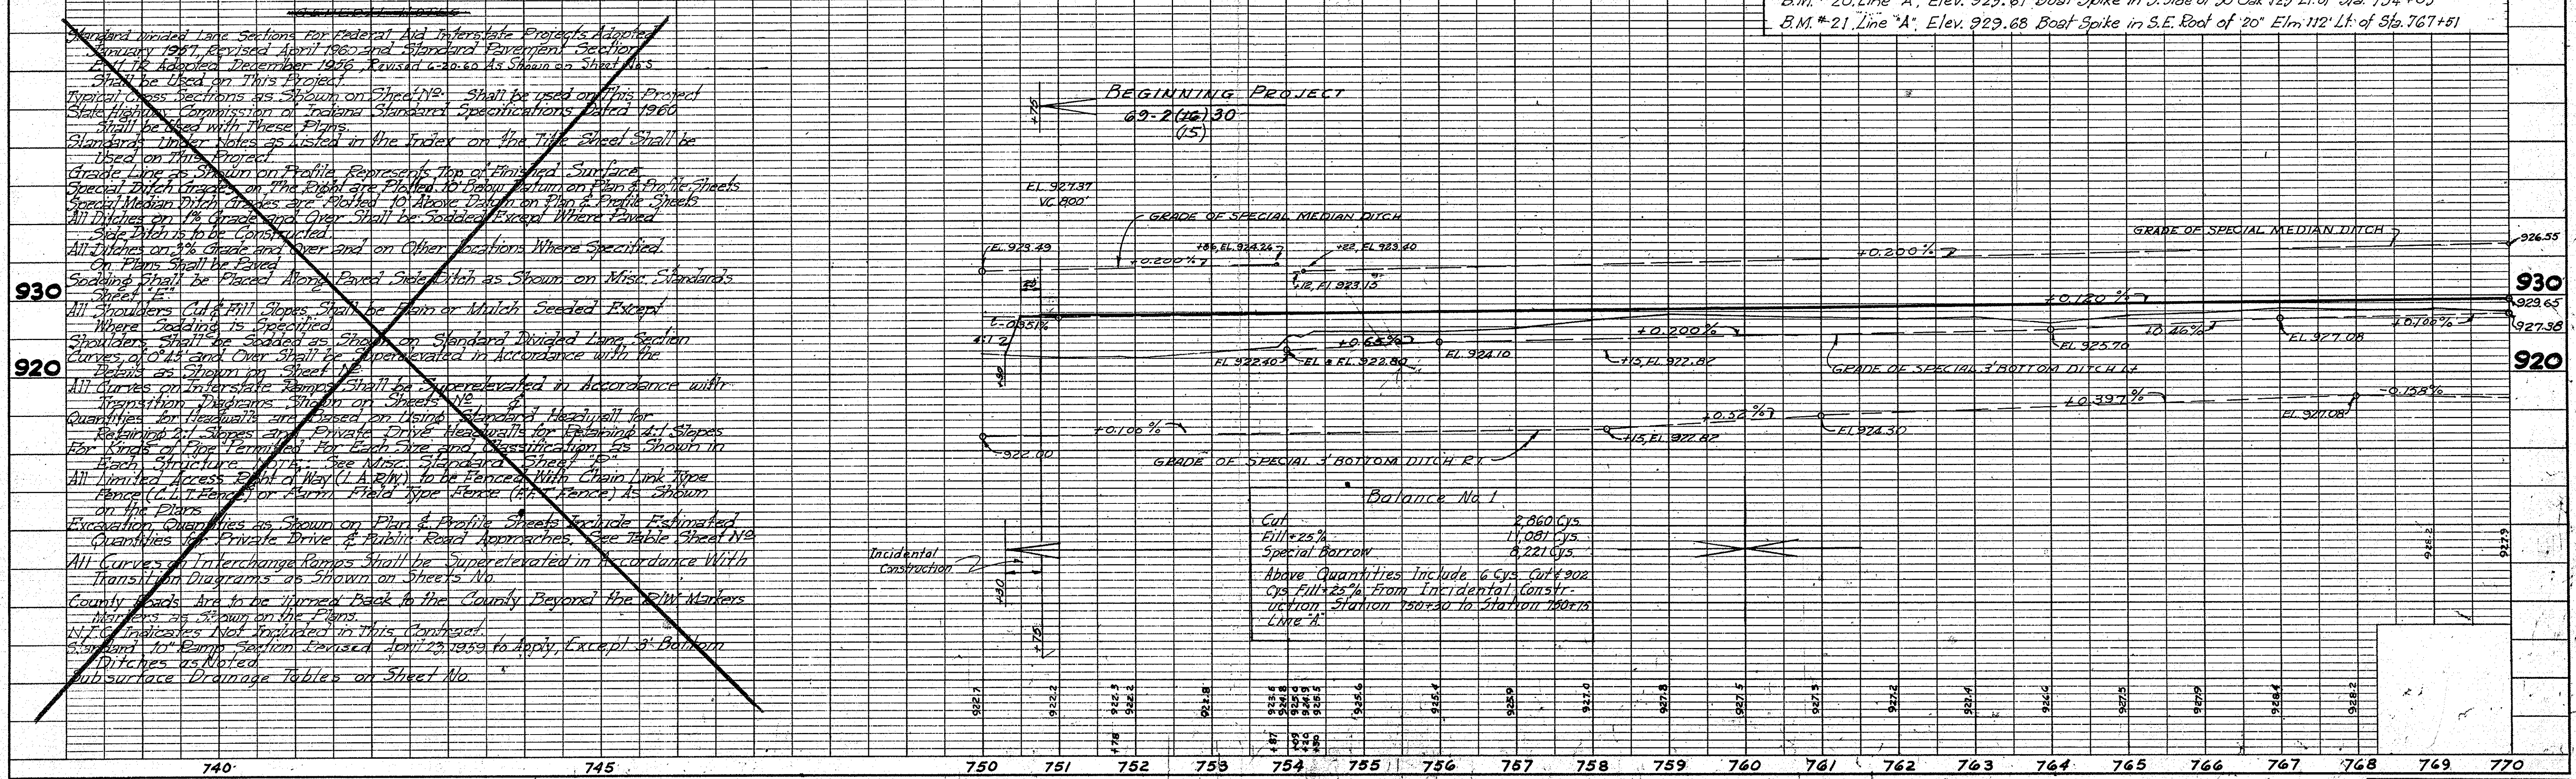 GENERAL NOTES
Standard Divided Lane Sections For Federal Aid Interstate Projects Adopted
January 1957, Revised April 1960 and Standard Pavement Section
Adopted December 1956, Revised 6-20-60 As Shown on Sheet Nos
Shall be Used on This Project
Typical Cross Sections as Shown on Sheet Nº Shall be used on This Project
State Highway Commission of Indiana Standard Specifications Dated 1960
Shall be Used with These Plans.
Standards Under Notes as Listed in the Index on the Title Sheet Shall be
Used on This Project
Grade Line as Shown on Profile Represents Top of Finished Surface
Special Ditch Grades on The Right are Plotted 10' Below Datum on Plan & Profile Sheets
Special Median Ditch Grades are Plotted 10' Above Datum on Plan & Profile Sheets
All Ditches on 1% Grade and Over Shall be Sodded Except Where Paved
Side Ditch is to be Constructed
All Ditches on 3% Grade and Over and on Other Locations Where Specified
On Plans Shall be Paved
Sodding Shall be Placed Along Paved Side Ditch as Shown on Misc. Standards
Sheet "E"
All Shoulders Cut & Fill Slopes Shall be Plain or Mulch Seeded Except
Where Sodding is Specified
Shoulders Shall be Sodded as Shown on Standard Divided Lane Section
Curves of 0°45' and Over Shall be Superelevated in Accordance with the
Details as Shown on Sheet Nº
All Curves on Interstate Ramps Shall be Superelevated in Accordance with
Transition Diagrams Shown on Sheets Nº &
Quantities for Headwalls are Based on Using Standard Headwall for
Retaining 2:1 Slopes and Private Drive Headwalls for Retaining 4:1 Slopes
For Kinds of Pipe Permitted For Each Size and Classification as Shown in
Each Structure NOTE: See Misc. Standard Sheet "P"
All Limited Access Right of Way (L.A. R/W) to be Fenced With Chain Link Type
Fence (C.L.T. Fence) or Farm Field Type Fence (F.F.T. Fence) As Shown
on the Plans
Excavation Quantities as Shown on Plan & Profile Sheets Include Estimated
Quantities for Private Drive & Public Road Approaches. See Table Sheet Nº
All Curves on Interchange Ramps Shall be Superelevated in Accordance With
Transition Diagrams as Shown on Sheets No.
County Roads Are to be Turned Back to the County Beyond the R/W Markers
Markers as Shown on the Plans.
N.I.C. Indicates Not Included in This Contract.
Standard 10" Ramp Section Revised April 23, 1959 to Apply, Except 3' Bottom
Ditches as Noted
Subsurface Drainage Tables on Sheet No.
B.M. #20, Line "A", Elev. 929.61 Boat Spike in S. Side of 30" Oak 125' Lt. of Sta. 754+03
B.M. #21, Line "A", Elev. 929.68 Boat Spike in S.E. Root of 20" Elm 112' Lt. of Sta. 767+51
+75
BEGINNING PROJECT
69-2(16)30
(15)
EL 927.37
VC 800'
GRADE OF SPECIAL MEDIAN DITCH
GRADE OF SPECIAL MEDIAN DITCH
926.55
EL. 923.49
+86, EL. 924.26
+22, EL 923.40
+0.200%
+0.200%
+12, El 923.15
930
930
+0.120 %
929.65
-0.351%
+0.200%
+0.46%
+0.100%
927.38
4:1 2
+0.65%
EL 922.40
EL 922.80
EL 924.10
+15, EL 922.87
EL 925.70
EL 927.08
920
920
+30
GRADE OF SPECIAL 3' BOTTOM DITCH Lt
+0.397 %
-0.158%
+0.100 %
+0.52 %
EL. 927.08
+15, El 922.87
EL 924.30
922.00
GRADE OF SPECIAL 3' BOTTOM DITCH RT.
Balance No. 1
Cut 2,860 Cys.
Fill +25% 11,081 Cys.
Special Borrow 8,221 Cys.
Above Quantities Include 6 Cys. Cut & 902
Cys Fill+25% From Incidental Constr-
uction Station 750+30 to Station 750+75
Line "A"
Incidental
Construction
+30
+75
928.2
927.9
922.7
922.2
922.3
922.2
922.8
923.6
924.8
925.0
924.9
925.5
925.6
925.4
925.9
927.0
927.8
927.5
927.5
927.2
927.4
926.6
927.5
927.9
928.4
928.2
+78
+87
+09
+20
+30
740 745 750 751 752 753 754 755 756 757 758 759 760 761 762 763 764 765 766 767 768 769 770